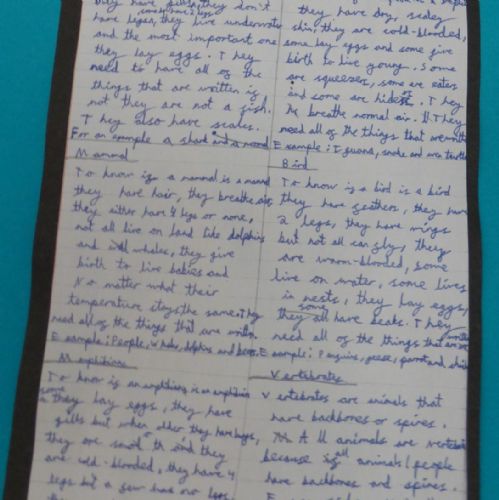 they have gills, they don't
have legs, they live underwater
and the most important one
they lay eggs. They
need to have all of the
things that are written is
not they are not a fish.
They also have scales.
For an example a shark and a
Mammal
To know if a mammal is a mammal
they have hair, they breathe air,
they either have 4 legs or none,
not all live on land like dolphins
and whales, they give
birth to live babies and
No matter what their
temperature stays the same. They
need all of the things that are written.
Example: People, whales, dolphins and bears.
To know is an is an
some
they lay eggs, they have
gills but when older they have lungs,
they are smooth and they
are cold-blooded, they have 4
legs but a few has no legs
they have dry, scaley
skin, they are cold-blooded,
some lay eggs and some give
birth to live young. Some
are squeezers, some are eaters
and some are
breathe normal air. They
need all of the things that are written
Example: Iguana, snake and sea turtle
Bird
To know is a bird is a bird
they have feathers, they have
2 legs, they have wings
but not all can fly, they
are warm-blooded, some
live on water, some lives
in nests, they lay eggs,
some
they all have beaks. They
need all of the things that are written
Example: Penguins, geese, parrot and
Vertebrates
Vertebrates are animals that
have backbones or spires.
All animals are vertebrates
because all animals/people
have backbones and spires.